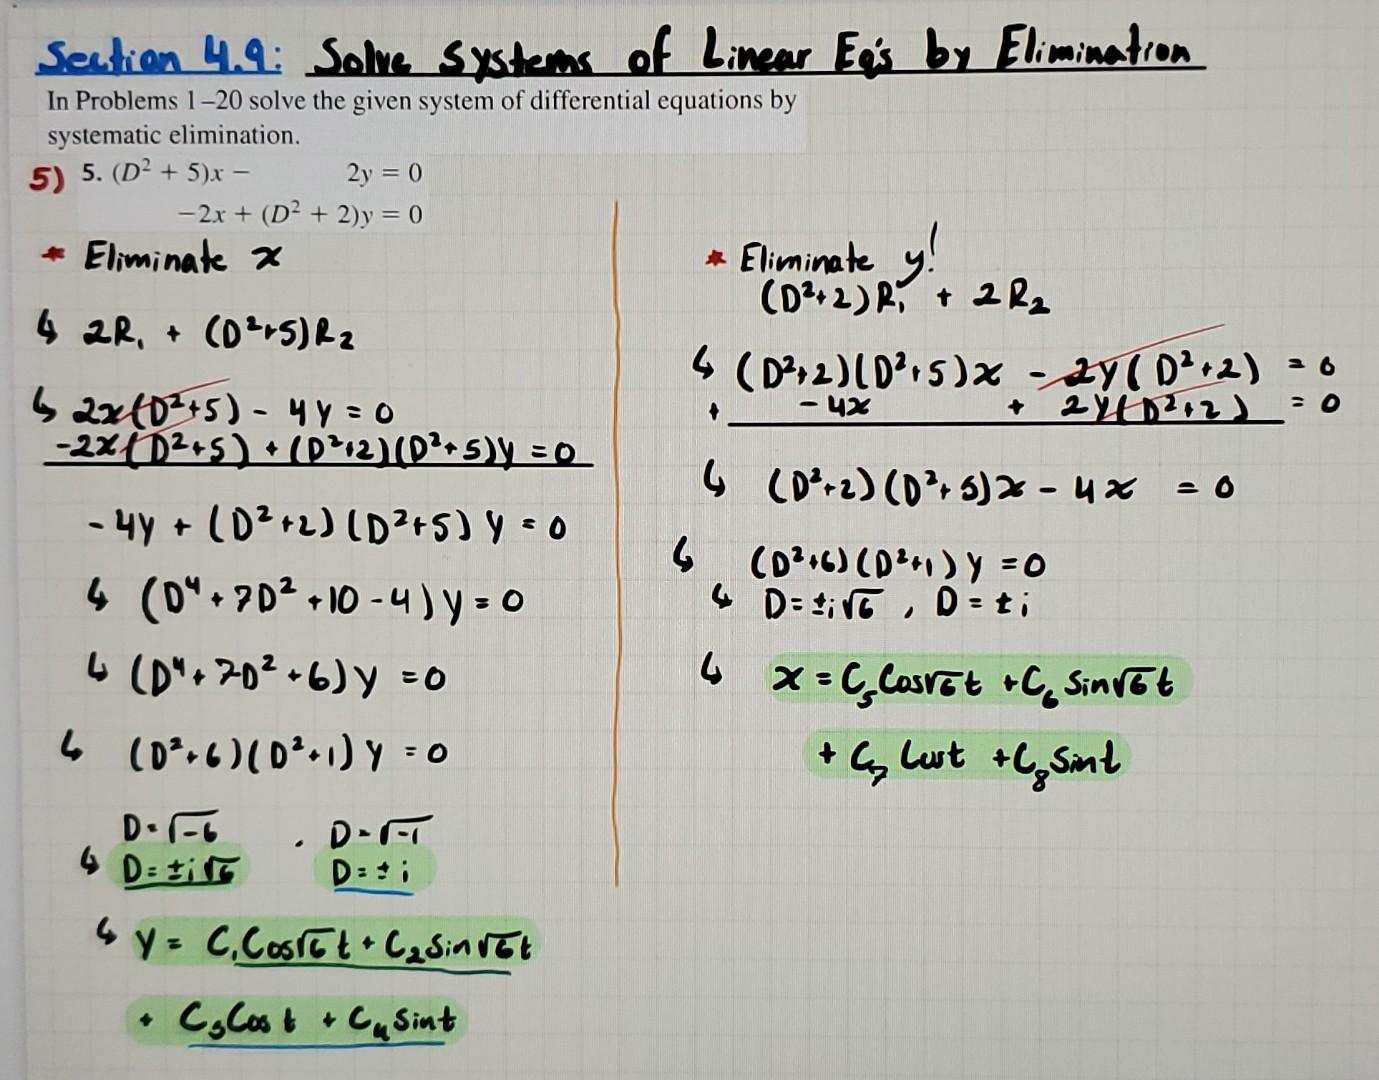 Section 4.9: Solve Systems of Linear Eq's by Elimination
In Problems 1–20 solve the given system of differential equations by
systematic elimination.
5) 5. (D² + 5)x − 2y = 0
−2x + (D² + 2)y = 0
* Eliminate x
↳ 2R₁ + (D²+5)R₂
↳ 2x(D²+5) - 4y = 0
-2x(D²+5) + (D²+2)(D²+5)y = 0
-4y + (D²+2)(D²+5)y = 0
↳ (D⁴+7D²+10-4)y = 0
↳ (D⁴+7D²+6)y = 0
↳ (D²+6)(D²+1)y = 0
D=√-6 , D=√-1
↳ D=±i√6 D=±i
↳ y = C₁Cos√6t + C₂Sin√6t
+ C₃Cos t + C₄Sint
* Eliminate y!
(D²+2)R₁ + 2R₂
↳ (D²+2)(D²+5)x - 2y(D²+2) = 0
+ -4x + 2y(D²+2) = 0
↳ (D²+2)(D²+5)x - 4x = 0
↳ (D²+6)(D²+1)y = 0
↳ D=±i√6 , D=±i
↳ x = C₅Cos√6t + C₆Sin√6t
+ C₇Cost + C₈Sint